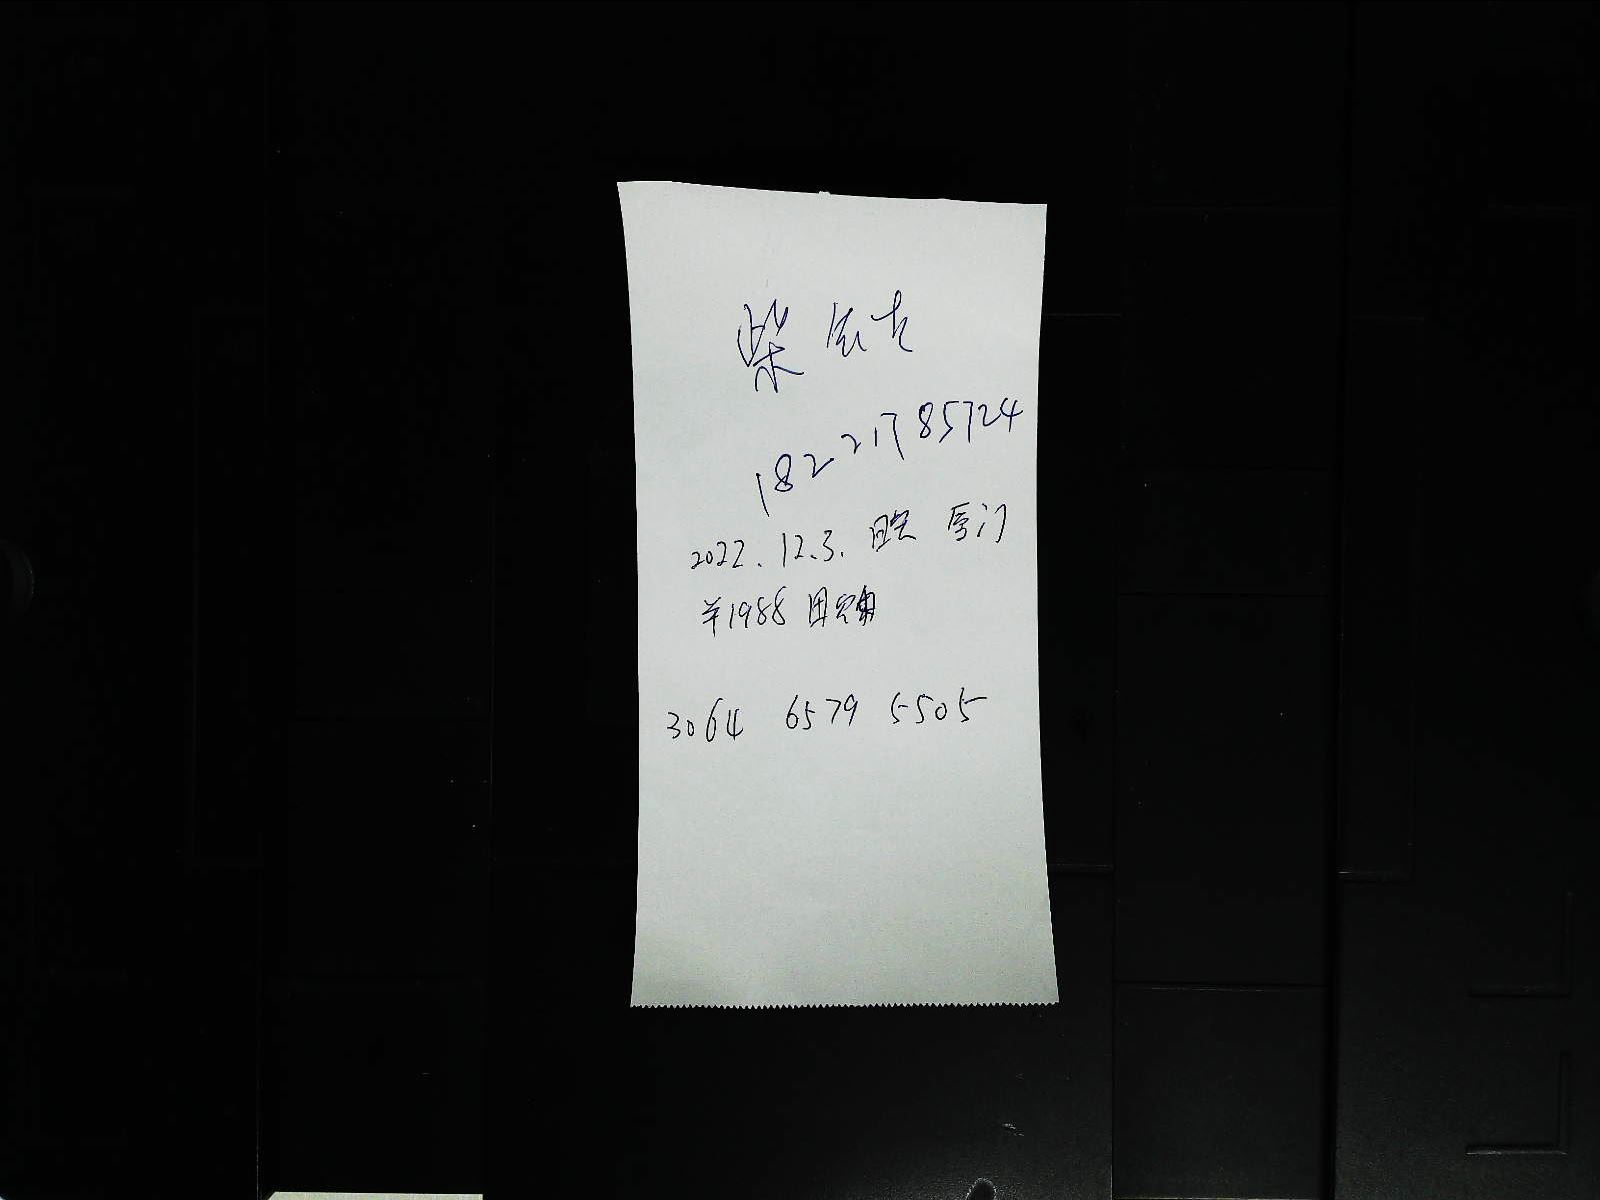 柴
18221785724
2022.12.3. 厦门
¥1988
3064 6579 5505